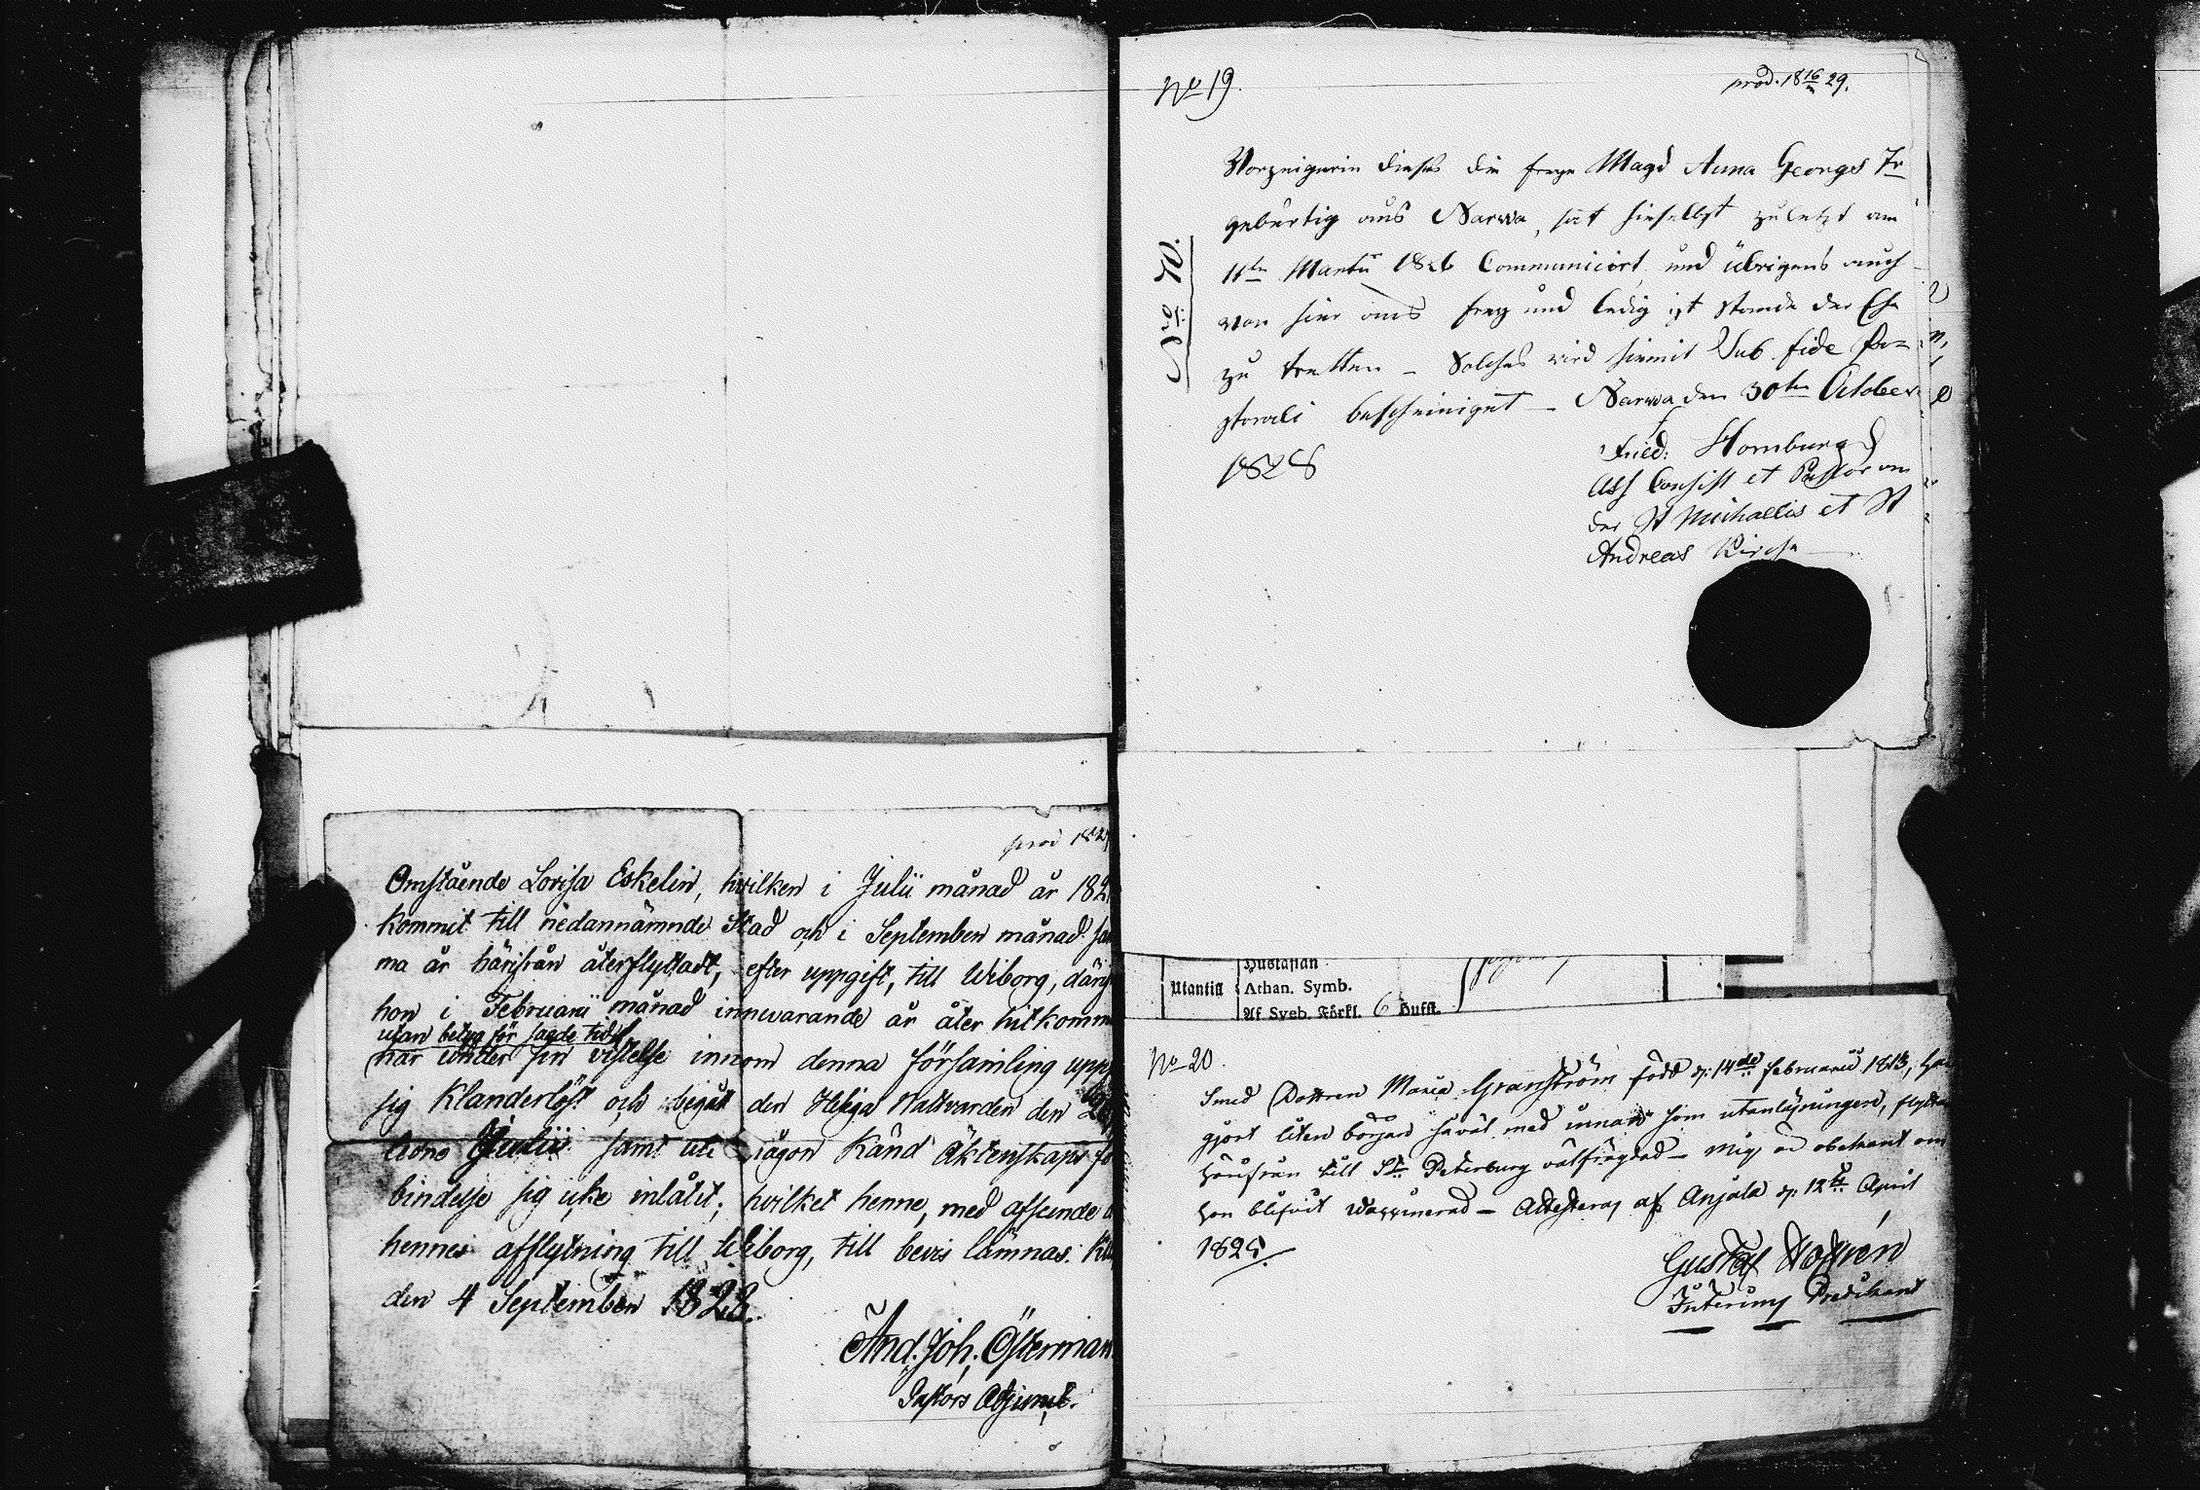 prod 182
Omstående Lovisa Eskelin, hvilken i Julii månad år 182
kommit till nedannämnde Stad och i September månad sam
ma år härifrån återflyttadt, efter uppgift, till Wiborg, därif
hon i Februarii månad innevarande år åter hitkomm
utan betyg för sagde tid,
har under sin vistelse innom denna församling upp
sig Klanderlöst och begåt den Heliga Nattvarden den
Julii samt uti någon Känd Äktenskaps fö
bindelse sig icke inlåtit; hvilket henne, med afseende
hennes afflytning till Wiborg, till bevis lämnas.
den 4 September 1828.
And. Joh. Österman
Pastors Adjunct.
No 19.
prod. 18 16 29.
Nro 70.
Vorzeigerin dieses die freye Magd Anna Georgs Tr
gebürtig aus Narva, hat hieselbst zuletzt am
11ten Martii 1826 Communicirt und übrigens auch
von hier aus frey und ledig ist Stande der Ehe
zu tretten – Solches wird hiemit Sub fide Pa=
storali bescheiniget – Narva den 30ten October
1828
Fried: Hornburg
Ass Consist et Pastor an
der St Michaelis et St
Andreas Kirche
Utantill
Hustaflan
Athan. Symb.
Af Sveb. Förkl. 6 Hufst.
No 20.
Smed Dottren Maria Granström född d: 14de Februarii 1813, har
gjort liten början såväl med innan som utanläsningen, flytta
härifrån till St Petersburg välfrägdad – mig är obekant om
hon blifvit vaccinerad – Attesteras af Anjala d: 12te April
182
Gustaf
Interims Predikant